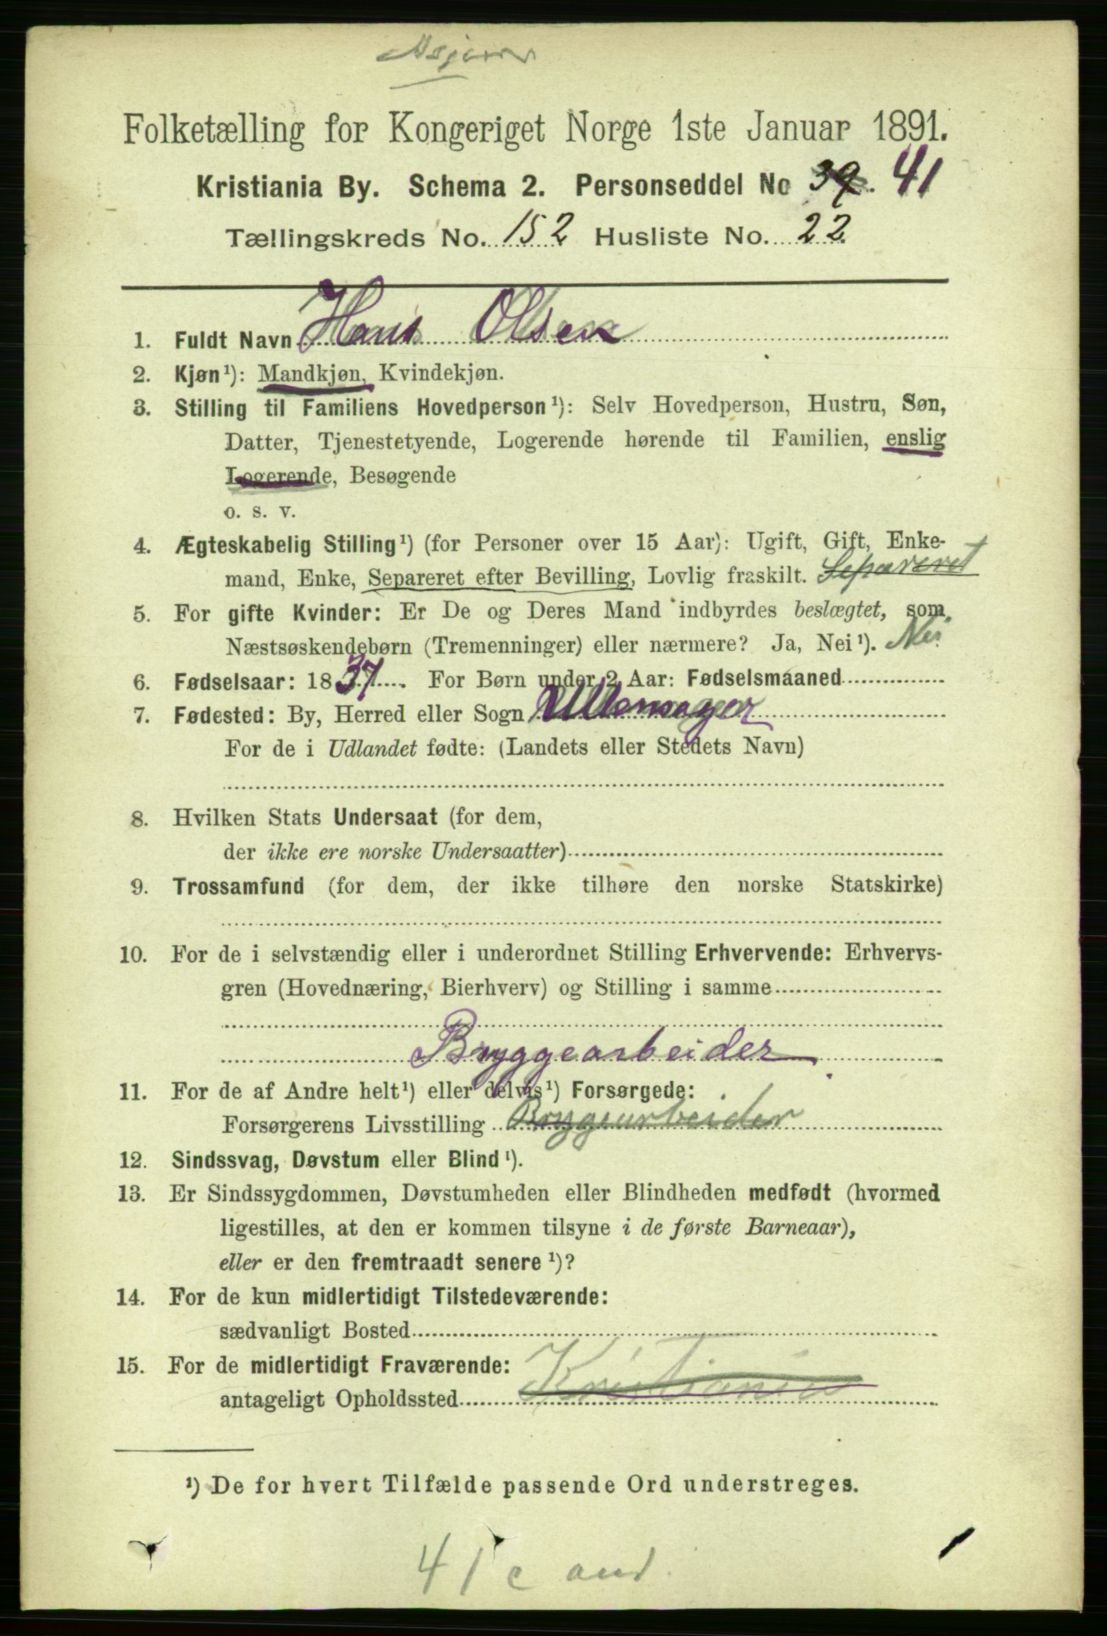 Folketælling for Kongeriget Norge 1ste Januar 1891.
Kristiania By. Schema 2. Personseddel No 39. 41
Tællingskreds No. 152 Husliste No. 22
1. Fuldt Navn Hans Olsen
2. Kjøn¹): Mandkjøn, Kvindekjøn.
3. Stilling til Familiens Hovedperson¹): Selv Hovedperson, Hustru, Søn,
Datter, Tjenestetyende, Logerende hørende til Familien, enslig
Logerende, Besøgende
o. s. v.
4. Ægteskabelig Stilling¹) (for Personer over 15 Aar): Ugift, Gift, Enke-
mand, Enke, Separeret efter Bevilling, Lovlig fraskilt. Separeret
5. For gifte Kvinder: Er De og Deres Mand indbyrdes beslægtet, som
Næstsøskendebørn (Tremenninger) eller nærmere? Ja, Nei¹). Nei
6. Fødselsaar: 1837. For Børn under 2 Aar: Fødselsmaaned
7. Fødested: By, Herred eller Sogn Ullensager
For de i Udlandet fødte: (Landets eller Stedets Navn)
8. Hvilken Stats Undersaat (for dem,
der ikke ere norske Undersaatter)
9. Trossamfund (for dem, der ikke tilhøre den norske Statskirke)
10. For de i selvstændig eller i underordnet Stilling Erhvervende: Erhvervs-
gren (Hovednæring, Bierhverv) og Stilling i samme
Bryggearbeider
11. For de af Andre helt¹) eller delvis¹) Forsørgede:
Forsørgerens Livsstilling Bryggearbeider
12. Sindssvag, Døvstum eller Blind¹).
13. Er Sindssygdommen, Døvstumheden eller Blindheden medfødt (hvormed
ligestilles, at den er kommen tilsyne i de første Barneaar),
eller er den fremtraadt senere¹)?
14. For de kun midlertidigt Tilstedeværende:
sædvanligt Bosted
15. For de midlertidigt Fraværende:
antageligt Opholdssted Kristiania
¹) De for hvert Tilfælde passende Ord understreges.
41 c and.